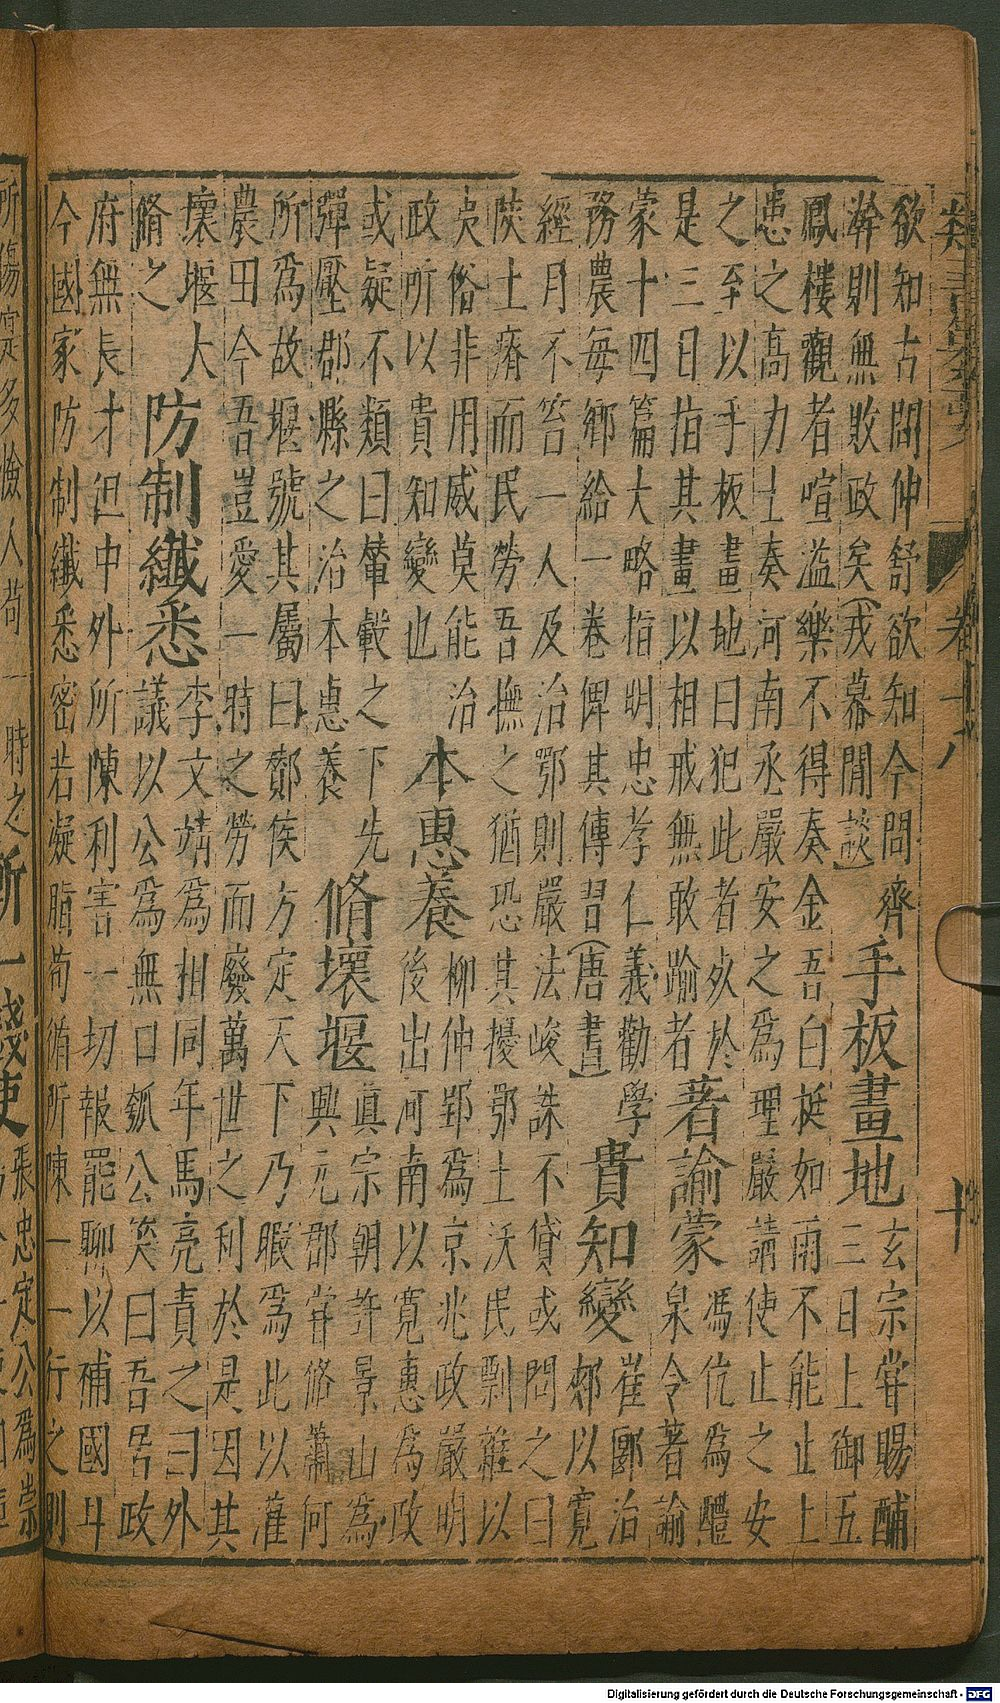 卷十八
十
欲知古問仲舒欲知今問齊
澣則無敗政矣(戎幕閒談)
手板畫地
玄宗嘗賜酺
三日上御五
鳳樓觀者喧溢樂不得奏金吾白挺如雨不能止上
患之高力士奏河南丞嚴安之為理嚴請使止之安
之至以手板畫地曰犯此者死於
是三日指其畫以相戒無敢踰者
著諭蒙
馮伉為醴
泉令著諭
蒙十四篇大略指明忠孝仁義勸學
務農每鄉給一卷俾其傳習(唐書)
貴知變
崔郾治
郟以寬
經月不笞一人及治鄂則嚴法峻誅不貸或問之曰
陜土瘠而民勞吾撫之猶恐其擾鄂土沃民剽雜以
夷俗非用威莫能治
政所以貴知變也
本惠養
柳仲郢為京兆政嚴明
後出河南以寬惠為政
或疑不類曰輦轂之下先
彈壓郡縣之治本惠養
脩壞堰
真宗朝許景山為
興元郡嘗脩蕭何
所為故堰號其屬曰酇侯方定天下乃暇為此以灌
農田今吾豈愛一時之勞而廢萬世之利於是因其
壞堰大
脩之
防制纖悉
李文靖為相同年馬亮責之曰外
議以公為無口瓠公笑曰吾居政
府無長才但中外所陳利害一切報罷聊以補國斗
今國家防制纖悉密若凝脂苟循所陳一一行之則
所傷實多憸人苟一時之
斬一錢吏
張忠定公為崇
Digitalisierung gefördert durch die Deutsche Forschungsgemeinschaft - DFG